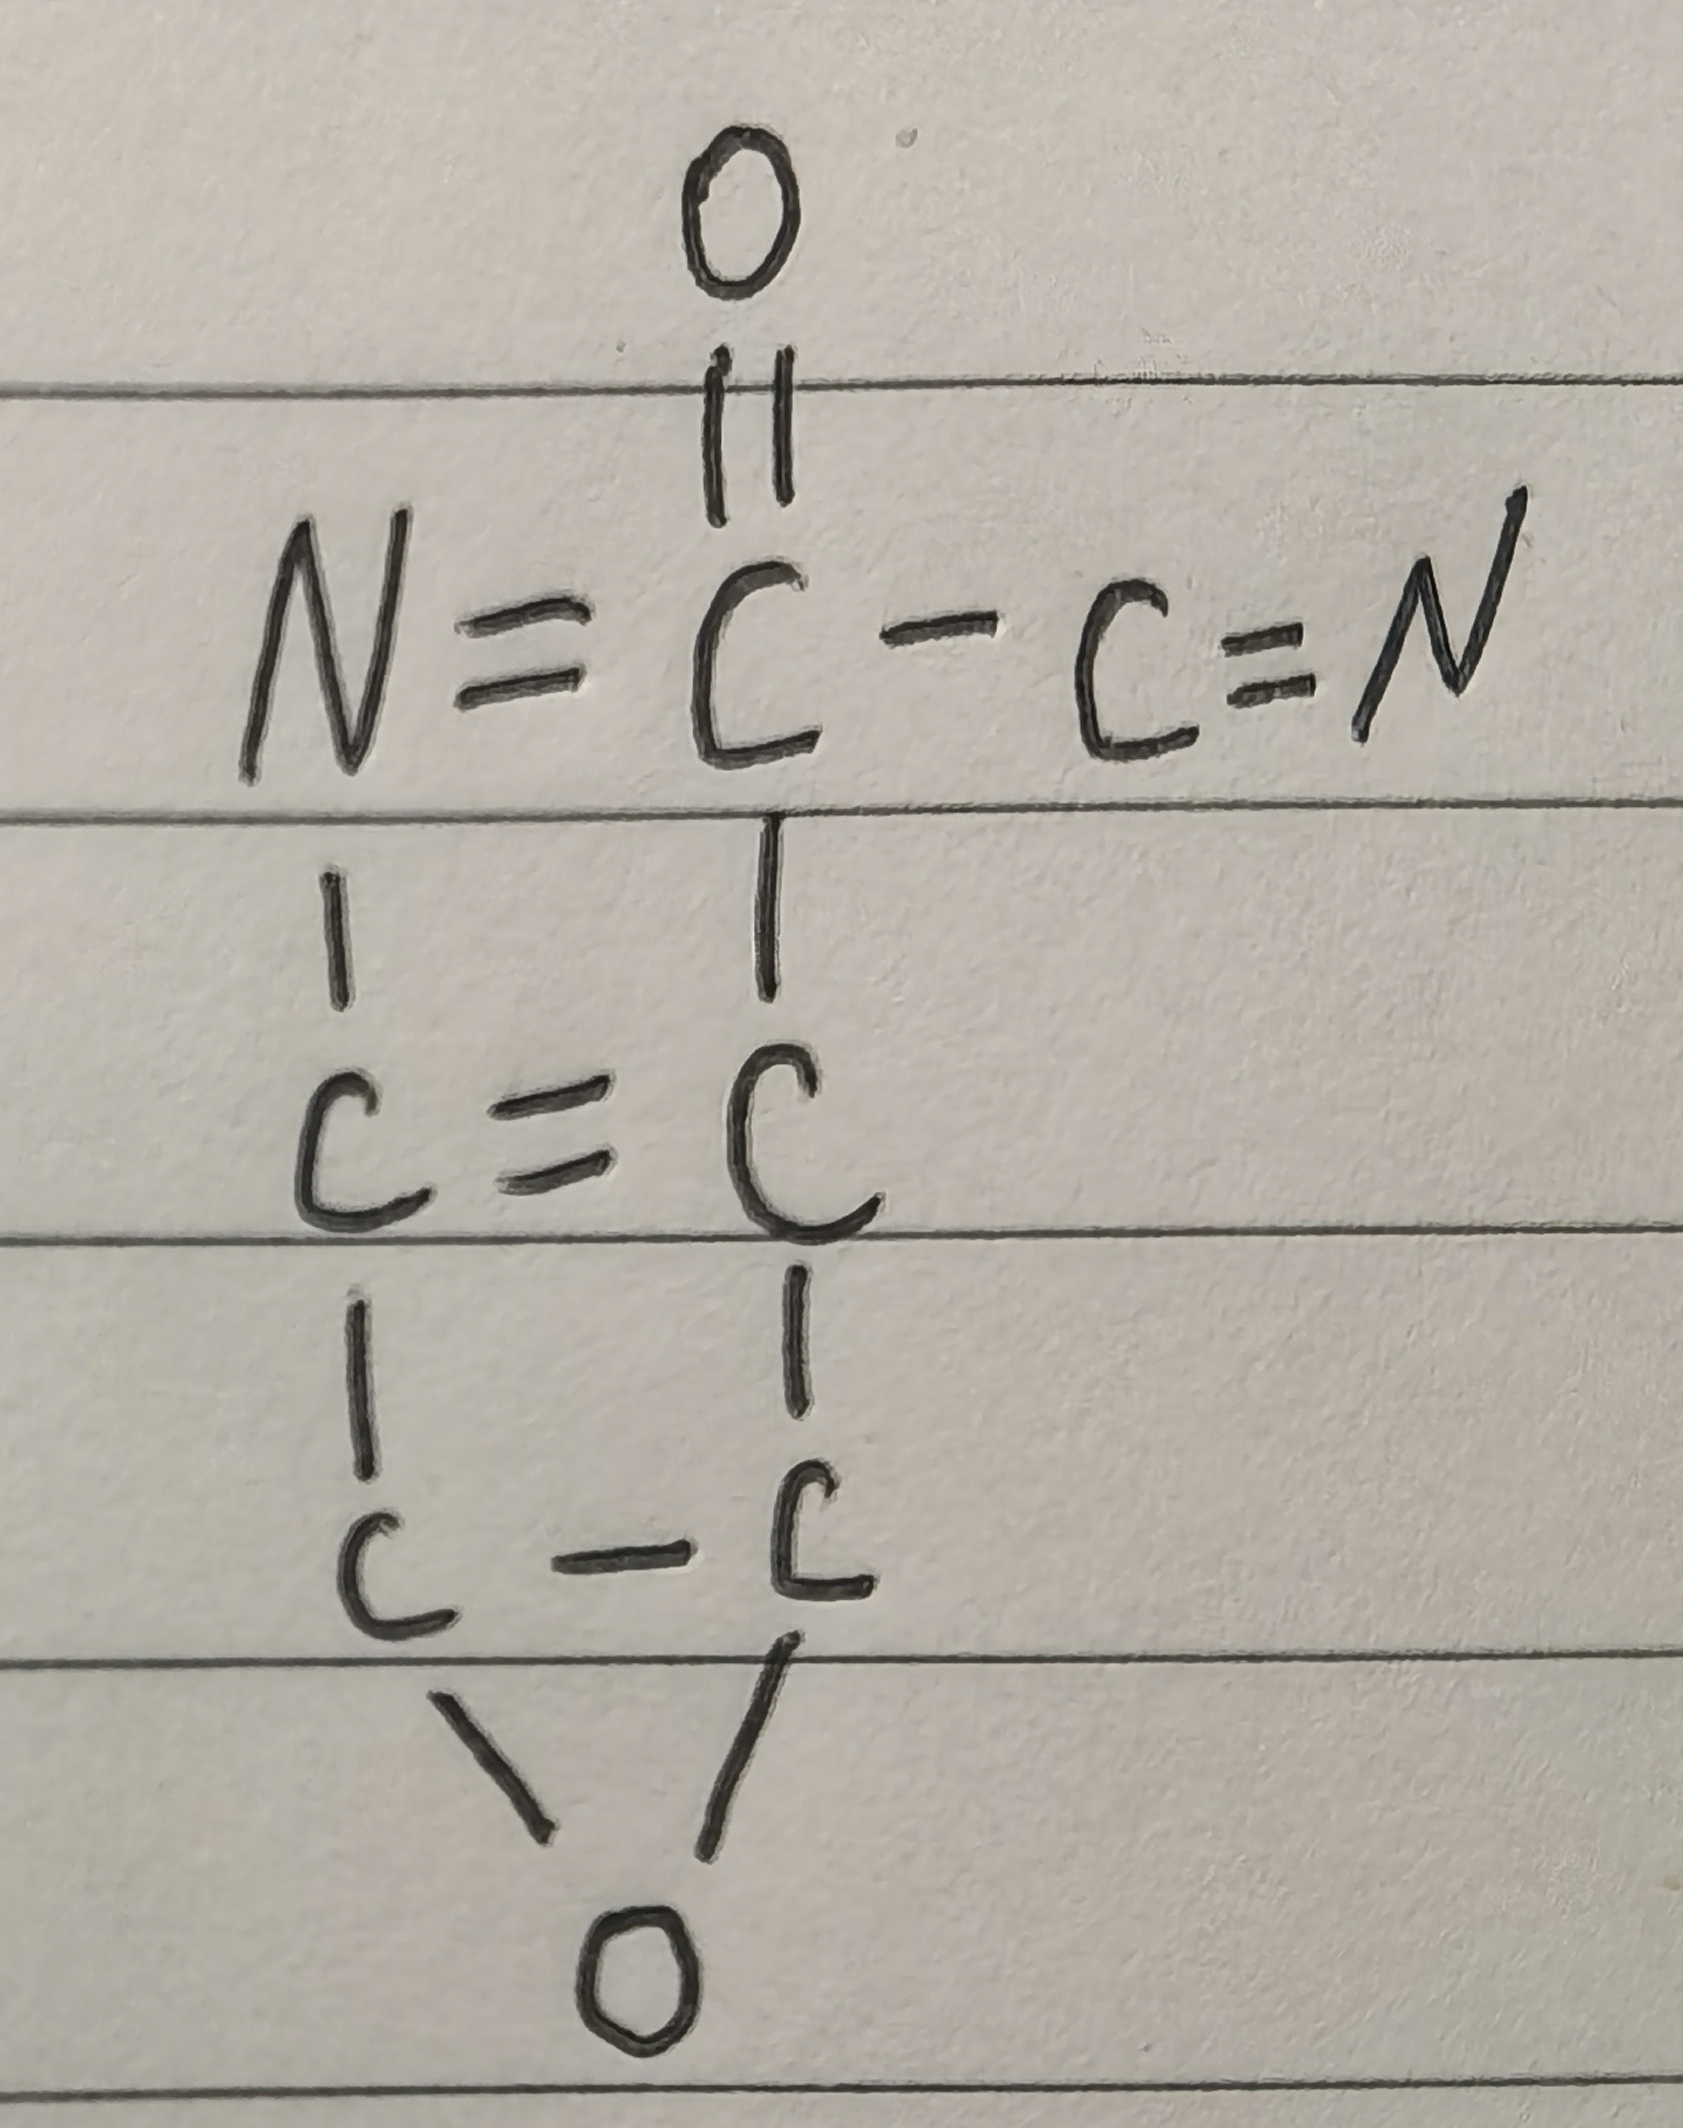 O
||
N = C - C = N
| |
C = C
| |
C - C
\ /
O